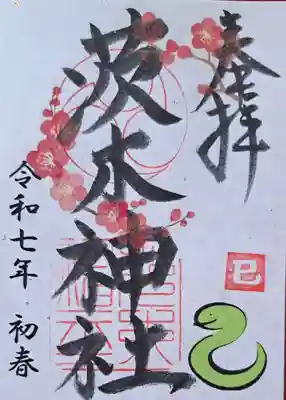 奉拝
茨木神社
令和七年 初春
巳